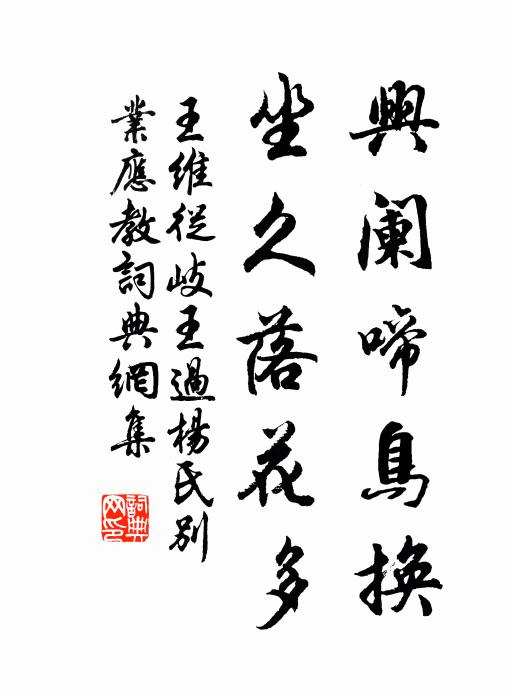 興阑啼鳥換
坐久落花多
王維從岐王過楊氏別
業應教詞典網集
詞典
网印